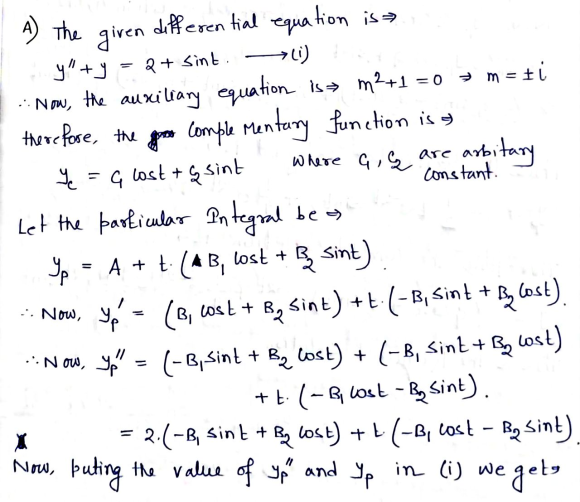 A) The given differential equation is ⇒
y'' + y = 2 + sint. ⟶ (i)
∴ Now, the auxiliary equation is ⇒ m²+1 = 0 ⇒ m = ±i
therefore, the Complementary function is ⇒
y_c = C₁ cost + C₂ sint where C₁, C₂ are arbitary
constant.
Let the particular Integral be ⇒
y_p = A + t. (B₁ cost + B₂ sint).
∴ Now, y_p' = (B₁ cost + B₂ sint) + t. (-B₁ sint + B₂ cost).
∴ Now, y_p'' = (-B₁ sint + B₂ cost) + (-B₁ sint + B₂ cost)
+ t. (-B₁ cost - B₂ sint).
= 2.(-B₁ sint + B₂ cost) + t (-B₁ cost - B₂ sint).
Now, puting the value of y_p'' and y_p in (i) we get ⇒